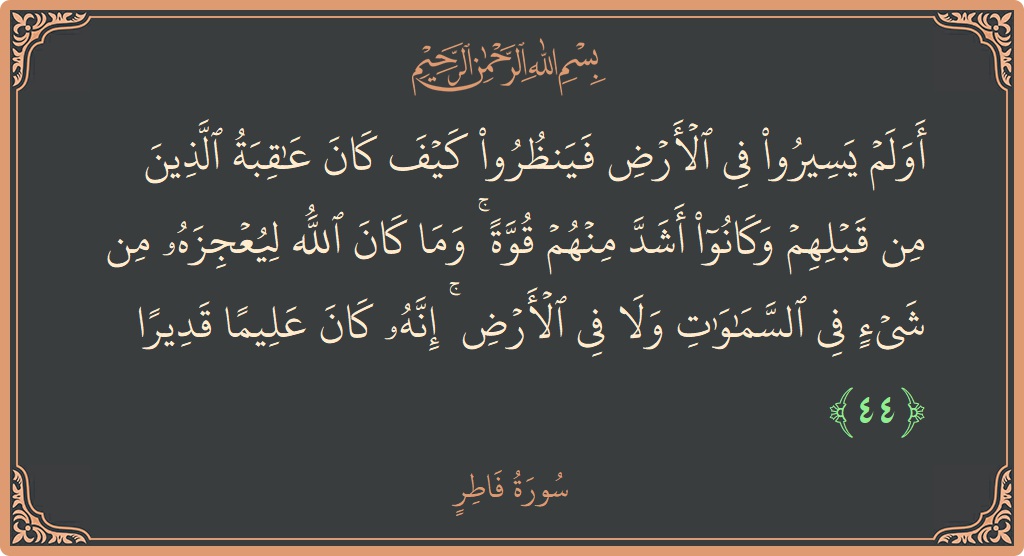 بِسْمِ ٱللَّهِ ٱلرَّحْمَٰنِ ٱلرَّحِيمِ
أَوَلَمْ يَسِيرُوا۟ فِى ٱلْأَرْضِ فَيَنظُرُوا۟ كَيْفَ كَانَ عَـٰقِبَةُ ٱلَّذِينَ
مِن قَبْلِهِمْ وَكَانُوٓا۟ أَشَدَّ مِنْهُمْ قُوَّةً ۚ وَمَا كَانَ ٱللَّهُ لِيُعْجِزَهُۥ مِن
شَىْءٍ فِى ٱلسَّمَـٰوَٰتِ وَلَا فِى ٱلْأَرْضِ ۚ إِنَّهُۥ كَانَ عَلِيمًا قَدِيرًا
﴿٤٤﴾
سُورَةُ فَاطِرٍ